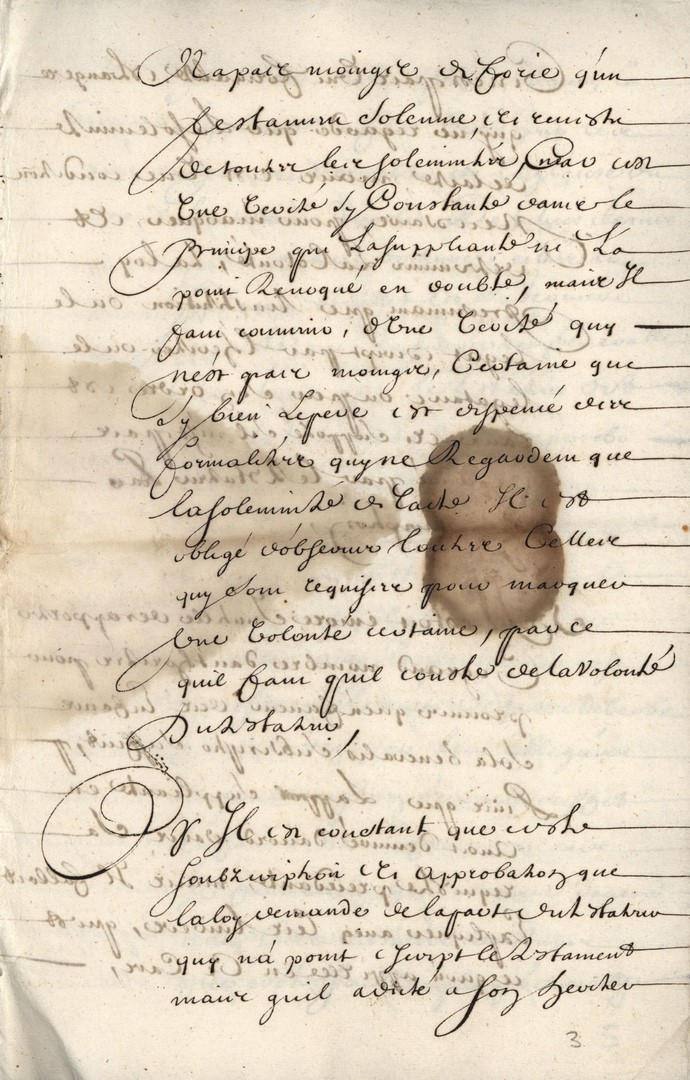 Na pair moingir de forie qu'un
testamen solemne, et revestu
de toutter leir solemnitér, mais c'est
Une verité sy Constante dans le
Principe que La suppliante ne L'a
point Revoqué en doubte, mair Il
faut convenir, d'Une verité quy
n'est pair moingir, Certaine que
sy bien Le pere est dispensé deir
formalitér quy ne Regardent que
la solemnité de l'acte Il est
obligé d'observer touttes Celleir
quy sont requiseir pour marquer
Une volonté certaine, par ce
quil faut quil conste de la volonté
Du testateur,
Or Il est constant que cette
soubzcription et approbation que
la loy demande de la part du testateur
quy n'a point escript le testament
mair quil a dicté a son heritier
3